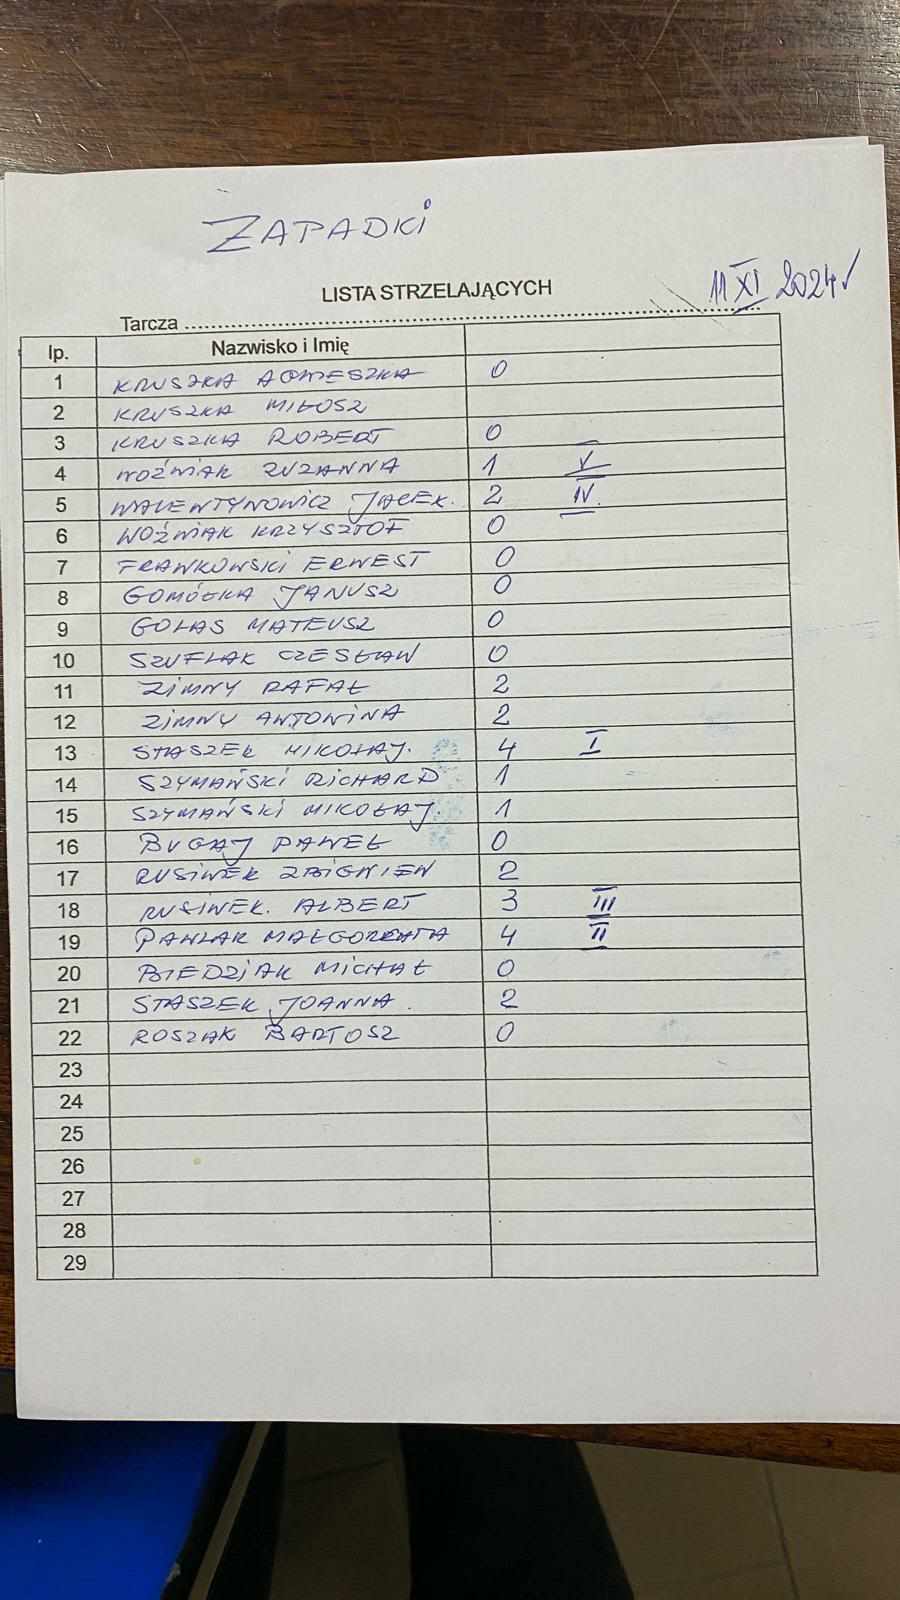 ZAPADKI
LISTA STRZELAJĄCYCH
11 XI 2024
Tarcza
lp. Nazwisko i Imię
1 KRUSZKA AGNIESZKA 0
2 KRUSZKA MIŁOSZ
3 KRUSZKA ROBERT 0
4 WOŹNIAK ZUZANNA 1 V
5 WALENTYNOWICZ JACEK. 2 IV.
6 WOŹNIAK KRZYSZTOF 0
7 FRANKOWSKI ERNEST 0
8 GOMÓŁKA JANUSZ 0
9 GOLAS MATEUSZ 0
10 SZUFLAK CZESŁAW 0
11 ZIMNY RAFAŁ 2
12 ZIMNY ANTONINA 2
13 STASZEK MIKOŁAJ. 4 I
14 SZYMAŃSKI RICHARD 1
15 SZYMAŃSKI MIKOŁAJ. 1
16 BUGAJ PAWEŁ 0
17 RUSINEK ZBIGNIEW 2
18 RUSINEK. ALBERT 3 III
19 PAWLAK MAŁGORZATA 4 II
20 BIEDZIAK MICHAŁ 0
21 STASZEK JOANNA. 2
22 ROSZAK BARTOSZ 0
23
24
25
26
27
28
29